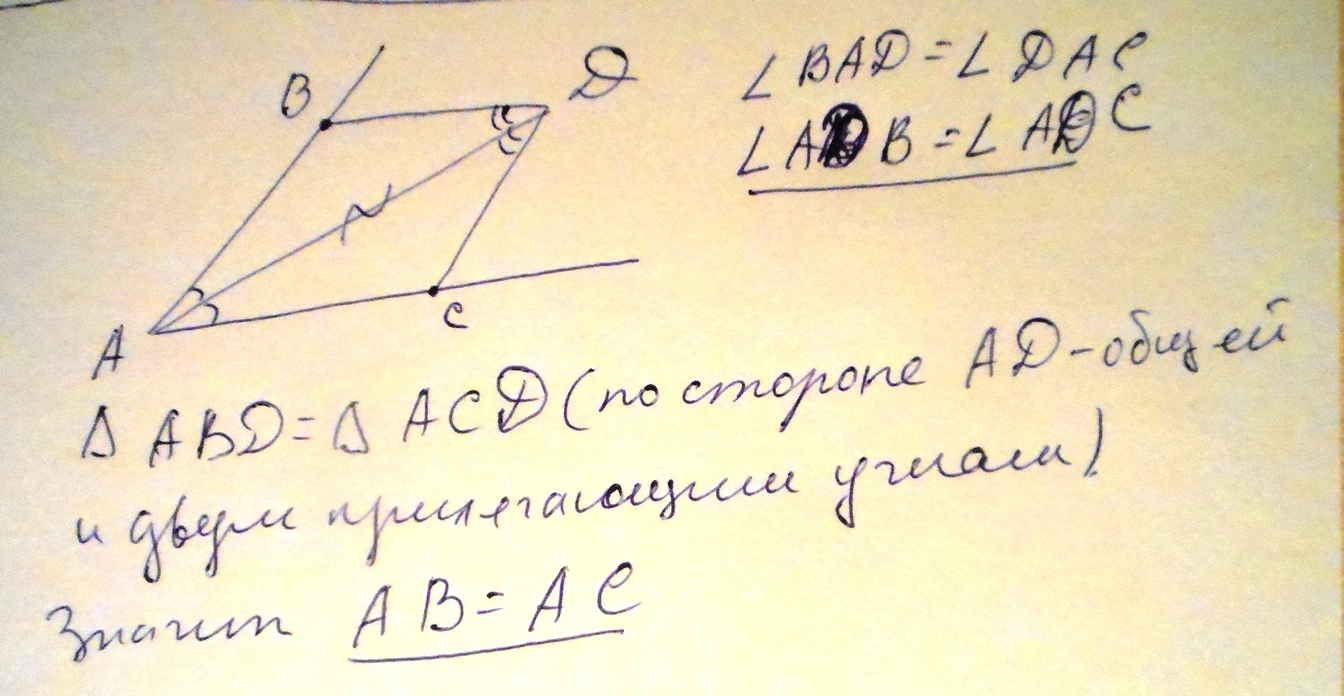 B
D
A
C
∠BAD = ∠DAC
∠ADB = ∠ADC
Δ ABD = Δ ACD (по стороне AD - общей
и двум прилегающим углам)
Значит AB = AC